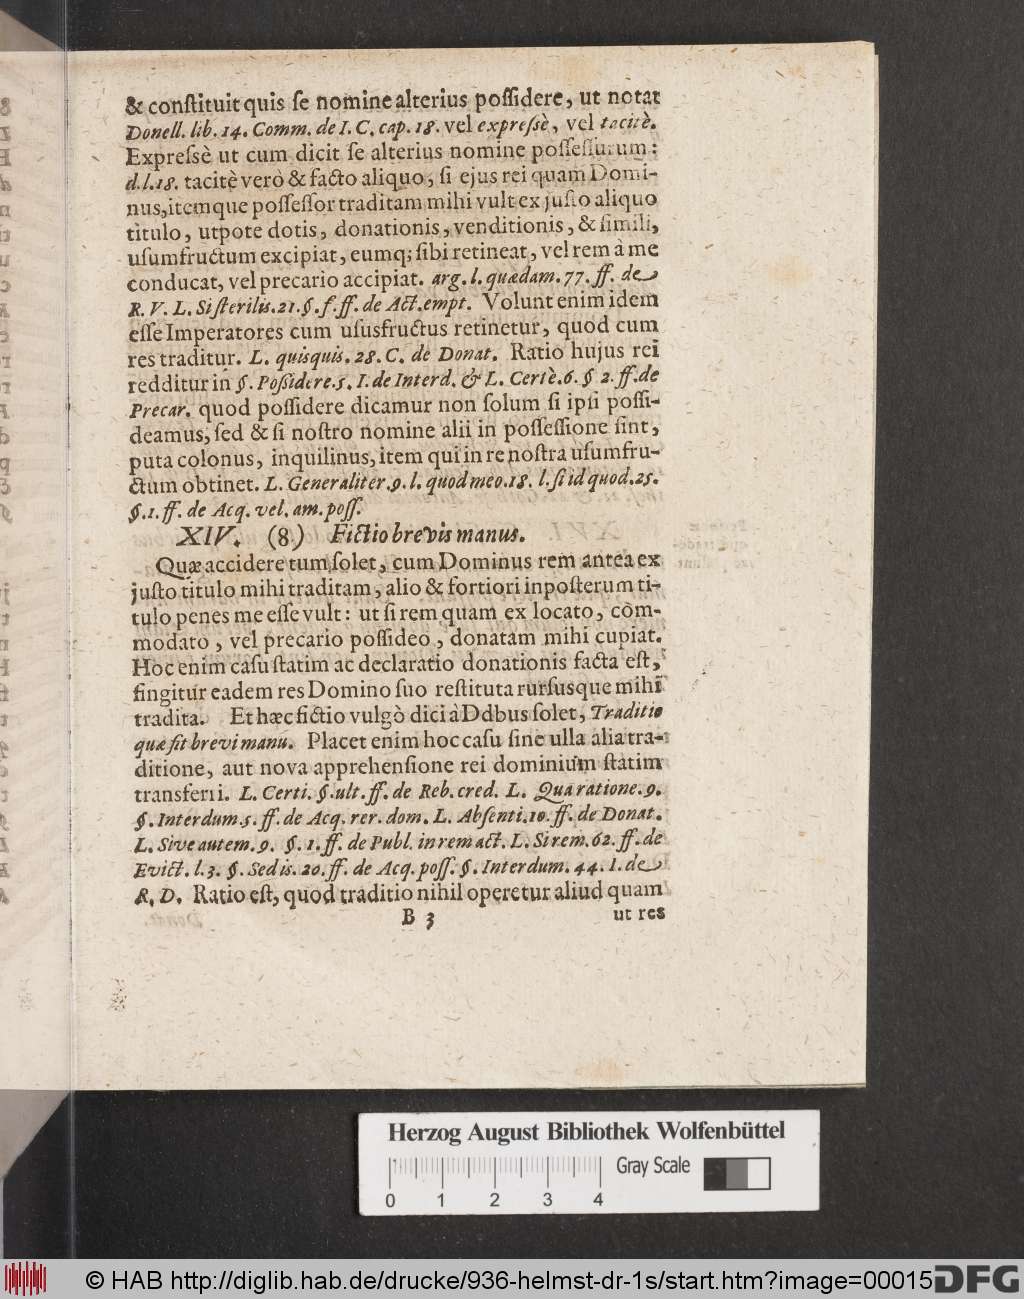 & conſtituit quis ſe nomine alterius poſſidere, ut notat
Donell. lib. 14. Comm. de I. C. cap. 18. vel expreſsè, vel tacitè.
Expreſsè ut cum dicit ſe alterius nomine poſſeſſurum:
d. l. 18. tacitè verò & facto aliquo, ſi ejus rei quam Domi-
nus, itemque poſſeſſor traditam mihi vult ex juſto aliquo
titulo, utpote dotis, donationis, venditionis, & ſimili,
uſumfructum excipiat, eumq; ſibi retineat, vel rem à me
conducat, vel precario accipiat. arg. l. quædam. 77. ff. de
R. V. L. Si ſterilis. 21. §. f. ff. de Act. empt. Volunt enim idem
eſſe Imperatores cum uſusfructus retinetur, quod cum
res traditur. L. quisquis. 28. C. de Donat. Ratio hujus rei
redditur in §. Poſsidere. 5. I. de Interd. & L. Certè. 6. § 2. ff. de
Precar. quod poſſidere dicamur non ſolum ſi ipſi poſſi-
deamus, ſed & ſi noſtro nomine alii in poſſeſſione ſint,
puta colonus, inquilinus, item qui in re noſtra uſumfru-
ctum obtinet. L. Generaliter. 9. l. quod meo. 18. l. ſi id quod. 25.
§. 1. ff. de Acq. vel. am. poſſ.
XIV. (8.) Fictio brevis manus.
Quæ accidere tum ſolet, cum Dominus rem antea ex
juſto titulo mihi traditam, alio & fortiori inpoſterum ti-
tulo penes me eſſe vult: ut ſi rem quam ex locato, com-
modato, vel precario poſſideo, donatam mihi cupiat.
Hoc enim caſu ſtatim ac declaratio donationis facta eſt,
fingitur eadem res Domino ſuo reſtituta rurſusque mihi
tradita. Et hæc fictio vulgò dici à Ddbus ſolet, Traditio
quæ fit brevi manu. Placet enim hoc caſu ſine ulla alia tra-
ditione, aut nova apprehenſione rei dominium ſtatim
transferri. L. Certi. §. ult. ff. de Reb. cred. L. Qua ratione. 9.
§. Interdum. 5. ff. de Acq. rer. dom. L. Abſenti. 10. ff. de Donat.
L. Sive autem. 9. §. 1. ff. de Publ. in rem act. L. Si rem. 62. ff. de
Evict. l. 3. §. Sed is. 20. ff. de Acq. poſſ. §. Interdum. 44. I. de
R. D. Ratio eſt, quod traditio nihil operetur aliud quam
B 3 ut res
Herzog August Bibliothek Wolfenbüttel
Gray Scale
0 1 2 3 4
© HAB http://diglib.hab.de/drucke/936-helmst-dr-1s/start.htm?image=00015
DFG